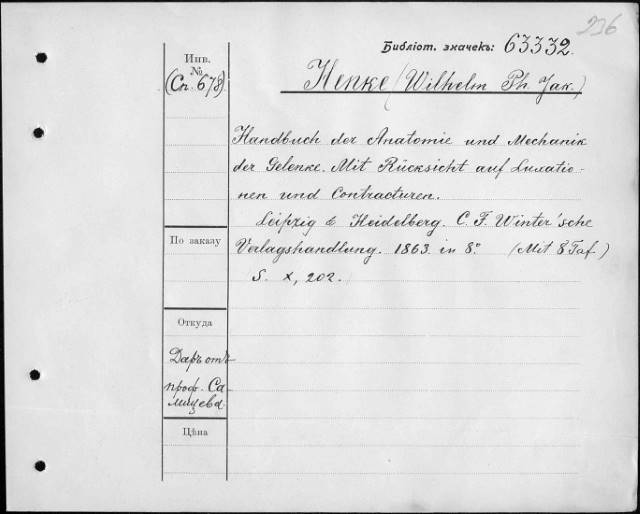 236
Библіот. значекъ: 63332.
Инв.
№
(Сп. 678)
Henke (Wilhelm Ph. Jak.)
Handbuch der Anatomie und Mechanik
der Gelenke. Mit Rücksicht auf Luxatio-
nen und Contracturen.
Leipzig & Heidelberg. C. F. Winter'sche
Verlagshandlung. 1863. in 8°. (Mit 8 Taf.)
S. X, 202.
По заказу
Откуда
Даръ отъ
проф. Са-
лищева.
Цѣна